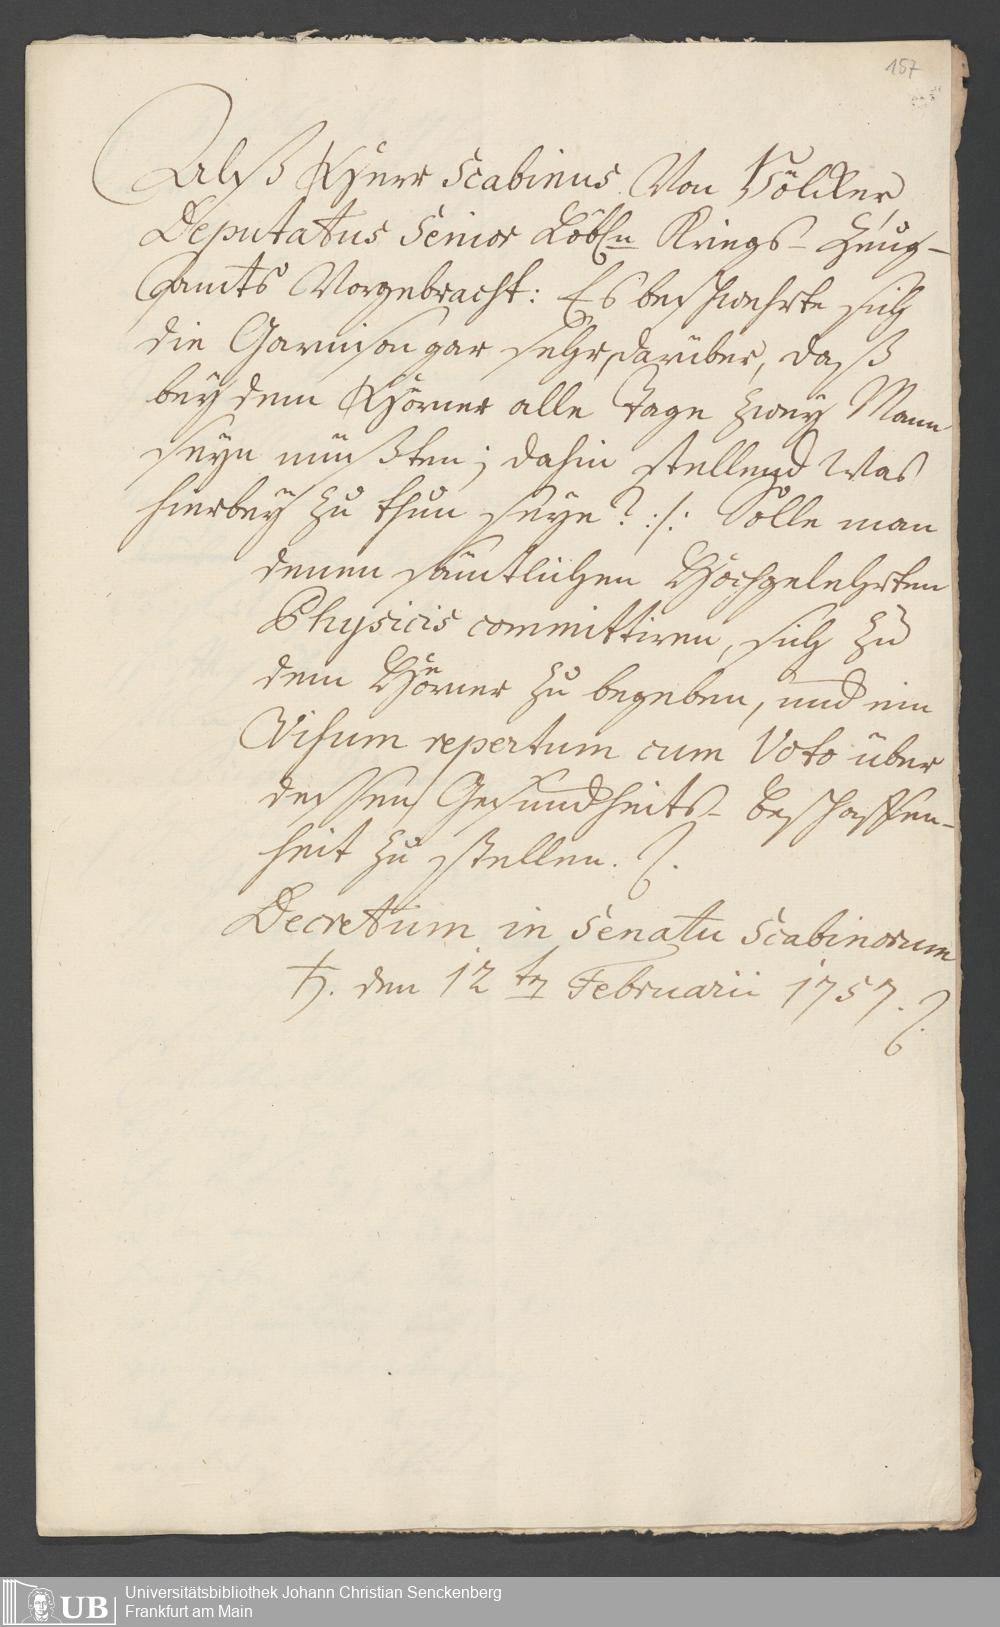 157
Alß Herr Scabinus Von Völcker
Deputatus Senior Löbl.n Kriegs- Zeug-
Amts Vorgebracht: Es beschwehrte sich
die Garnison gar sehr darüber, daß
bey dem Hörner alle Tage zwey Mann
seyn müßten; dahin stellend Was
hierbey zu thun seye? :/: Solle man
denen sämtlichen Hochgelehrten
Physicis committiren, sich zu
dem Hörner zu begeben, und ein
Visum repertum cum Voto über
dessen Gesundheits- Beschaffen-
heit zu stellen.
Decretum in Senatu Scabinorum
♄. den 12ten Februarii 1757.
UB
Universitätsbibliothek Johann Christian Senckenberg
Frankfurt am Main